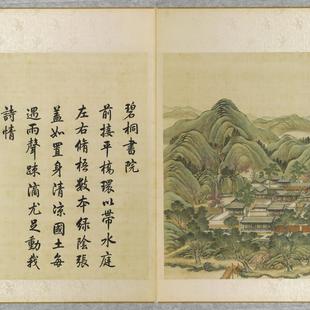 碧桐書院
前接平橋環以帶水庭
左右脩梧數本綠陰張
蓋如置身清涼國土每
遇雨聲疎滴尤足動我
詩情